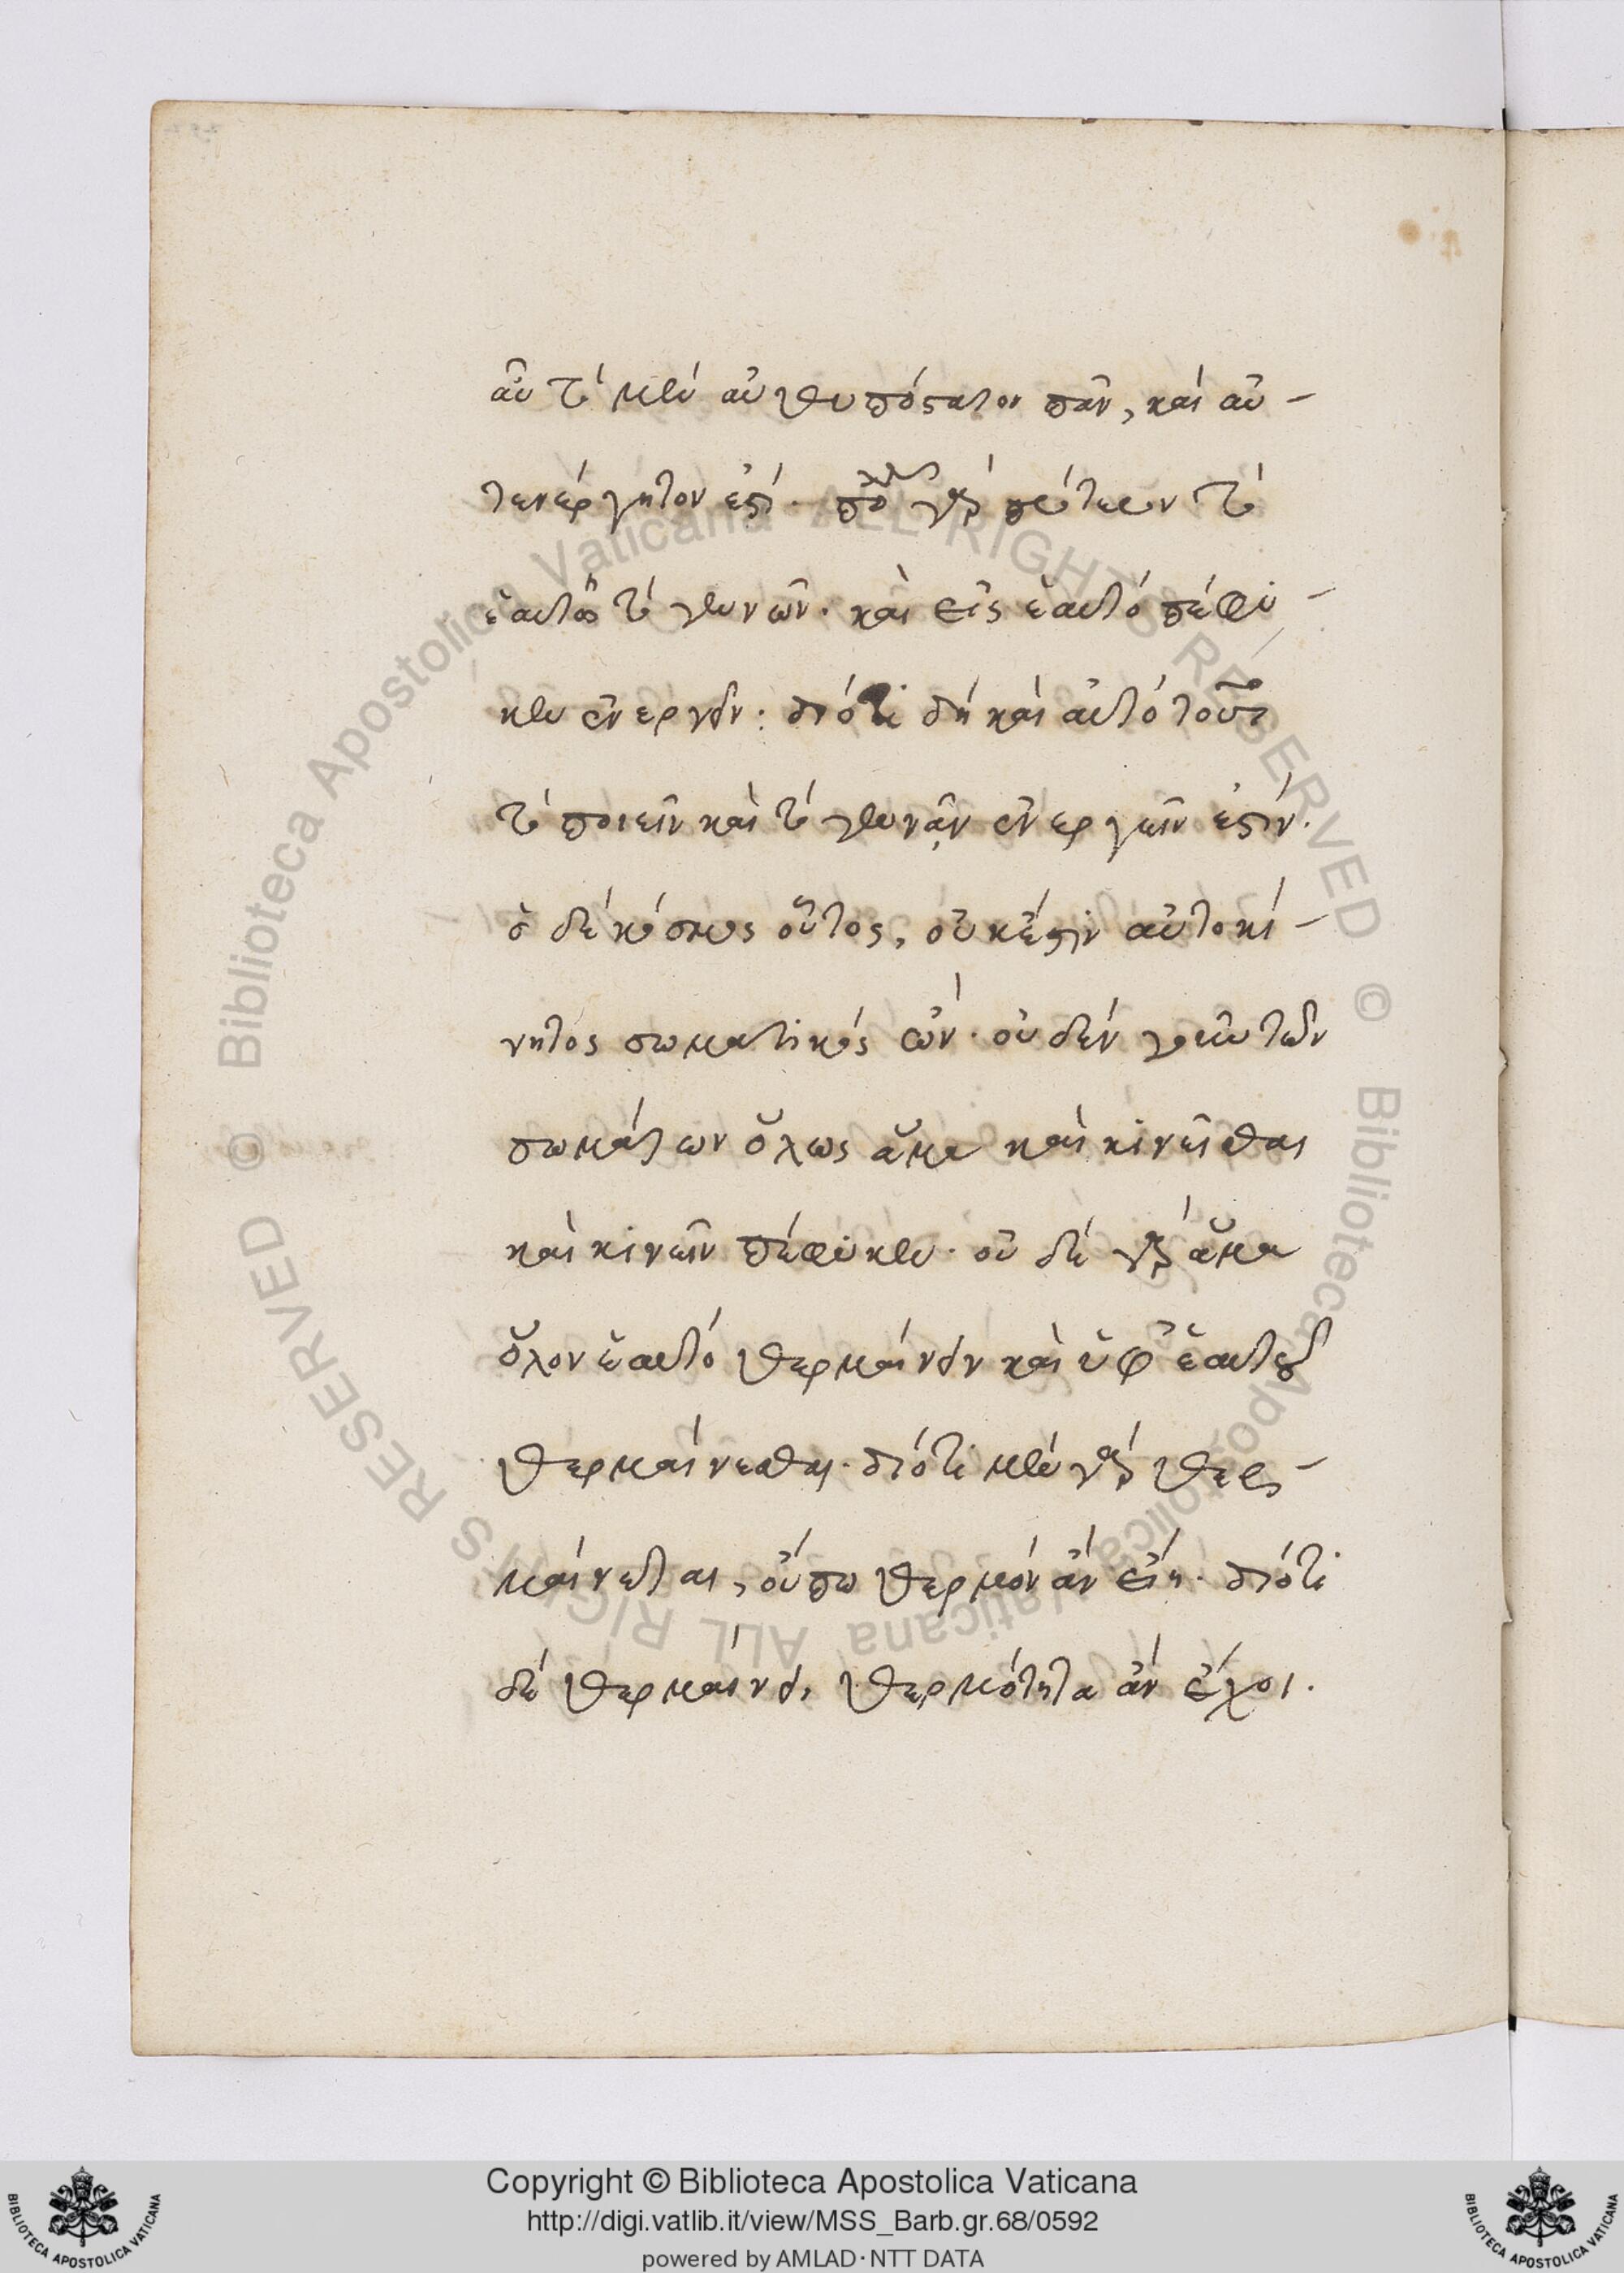 αὖ τὸ μὲν αὐθυπόστατον πᾶν, καὶ αὐ-
τενέργητον ἐστί. πολλῷ γὰρ πρότερον τὸ
ἑαυτὸ γεννῶν. καὶ εἰς ἑαυτὸ πέφυ-
κεν ἐνεργεῖν. διότι δὴ καὶ αὐτὸ τοῦτο
τὸ ποιεῖν καὶ τὸ γεννᾶν ἐνεργεῖν ἐστίν.
ὁ δὲ κόσμος οὗτος, οὐκ ἔστιν αὐτοκί-
νητος σωματικός ὤν. οὐδὲν γοῦν τῶν
σωμάτων ὅλως ἅμα καὶ κινεῖσθαι
καὶ κινεῖν πέφυκεν. οὐδὲ γὰρ ἅμα
ὅλον ἑαυτὸ θερμαίνειν καὶ ὑφ' ἑαυτοῦ
θερμαίνεσθαι. διότι μὲν γὰρ θερ-
μαίνεται, οὔπω θερμὸν ἂν εἴη. διότι
δὲ θερμαίνει, θερμότητα ἂν ἔχοι.
Copyright © Biblioteca Apostolica Vaticana
http://digi.vatlib.it/view/MSS_Barb.gr.68/0592
powered by AMLAD · NTT DATA
BIBLIOTECA APOSTOLICA VATICANA
BIBLIOTECA APOSTOLICA VATICANA
© Biblioteca Apostolica Vaticana ALL RIGHTS RESERVED
© Biblioteca Apostolica Vaticana ALL RIGHTS RESERVED